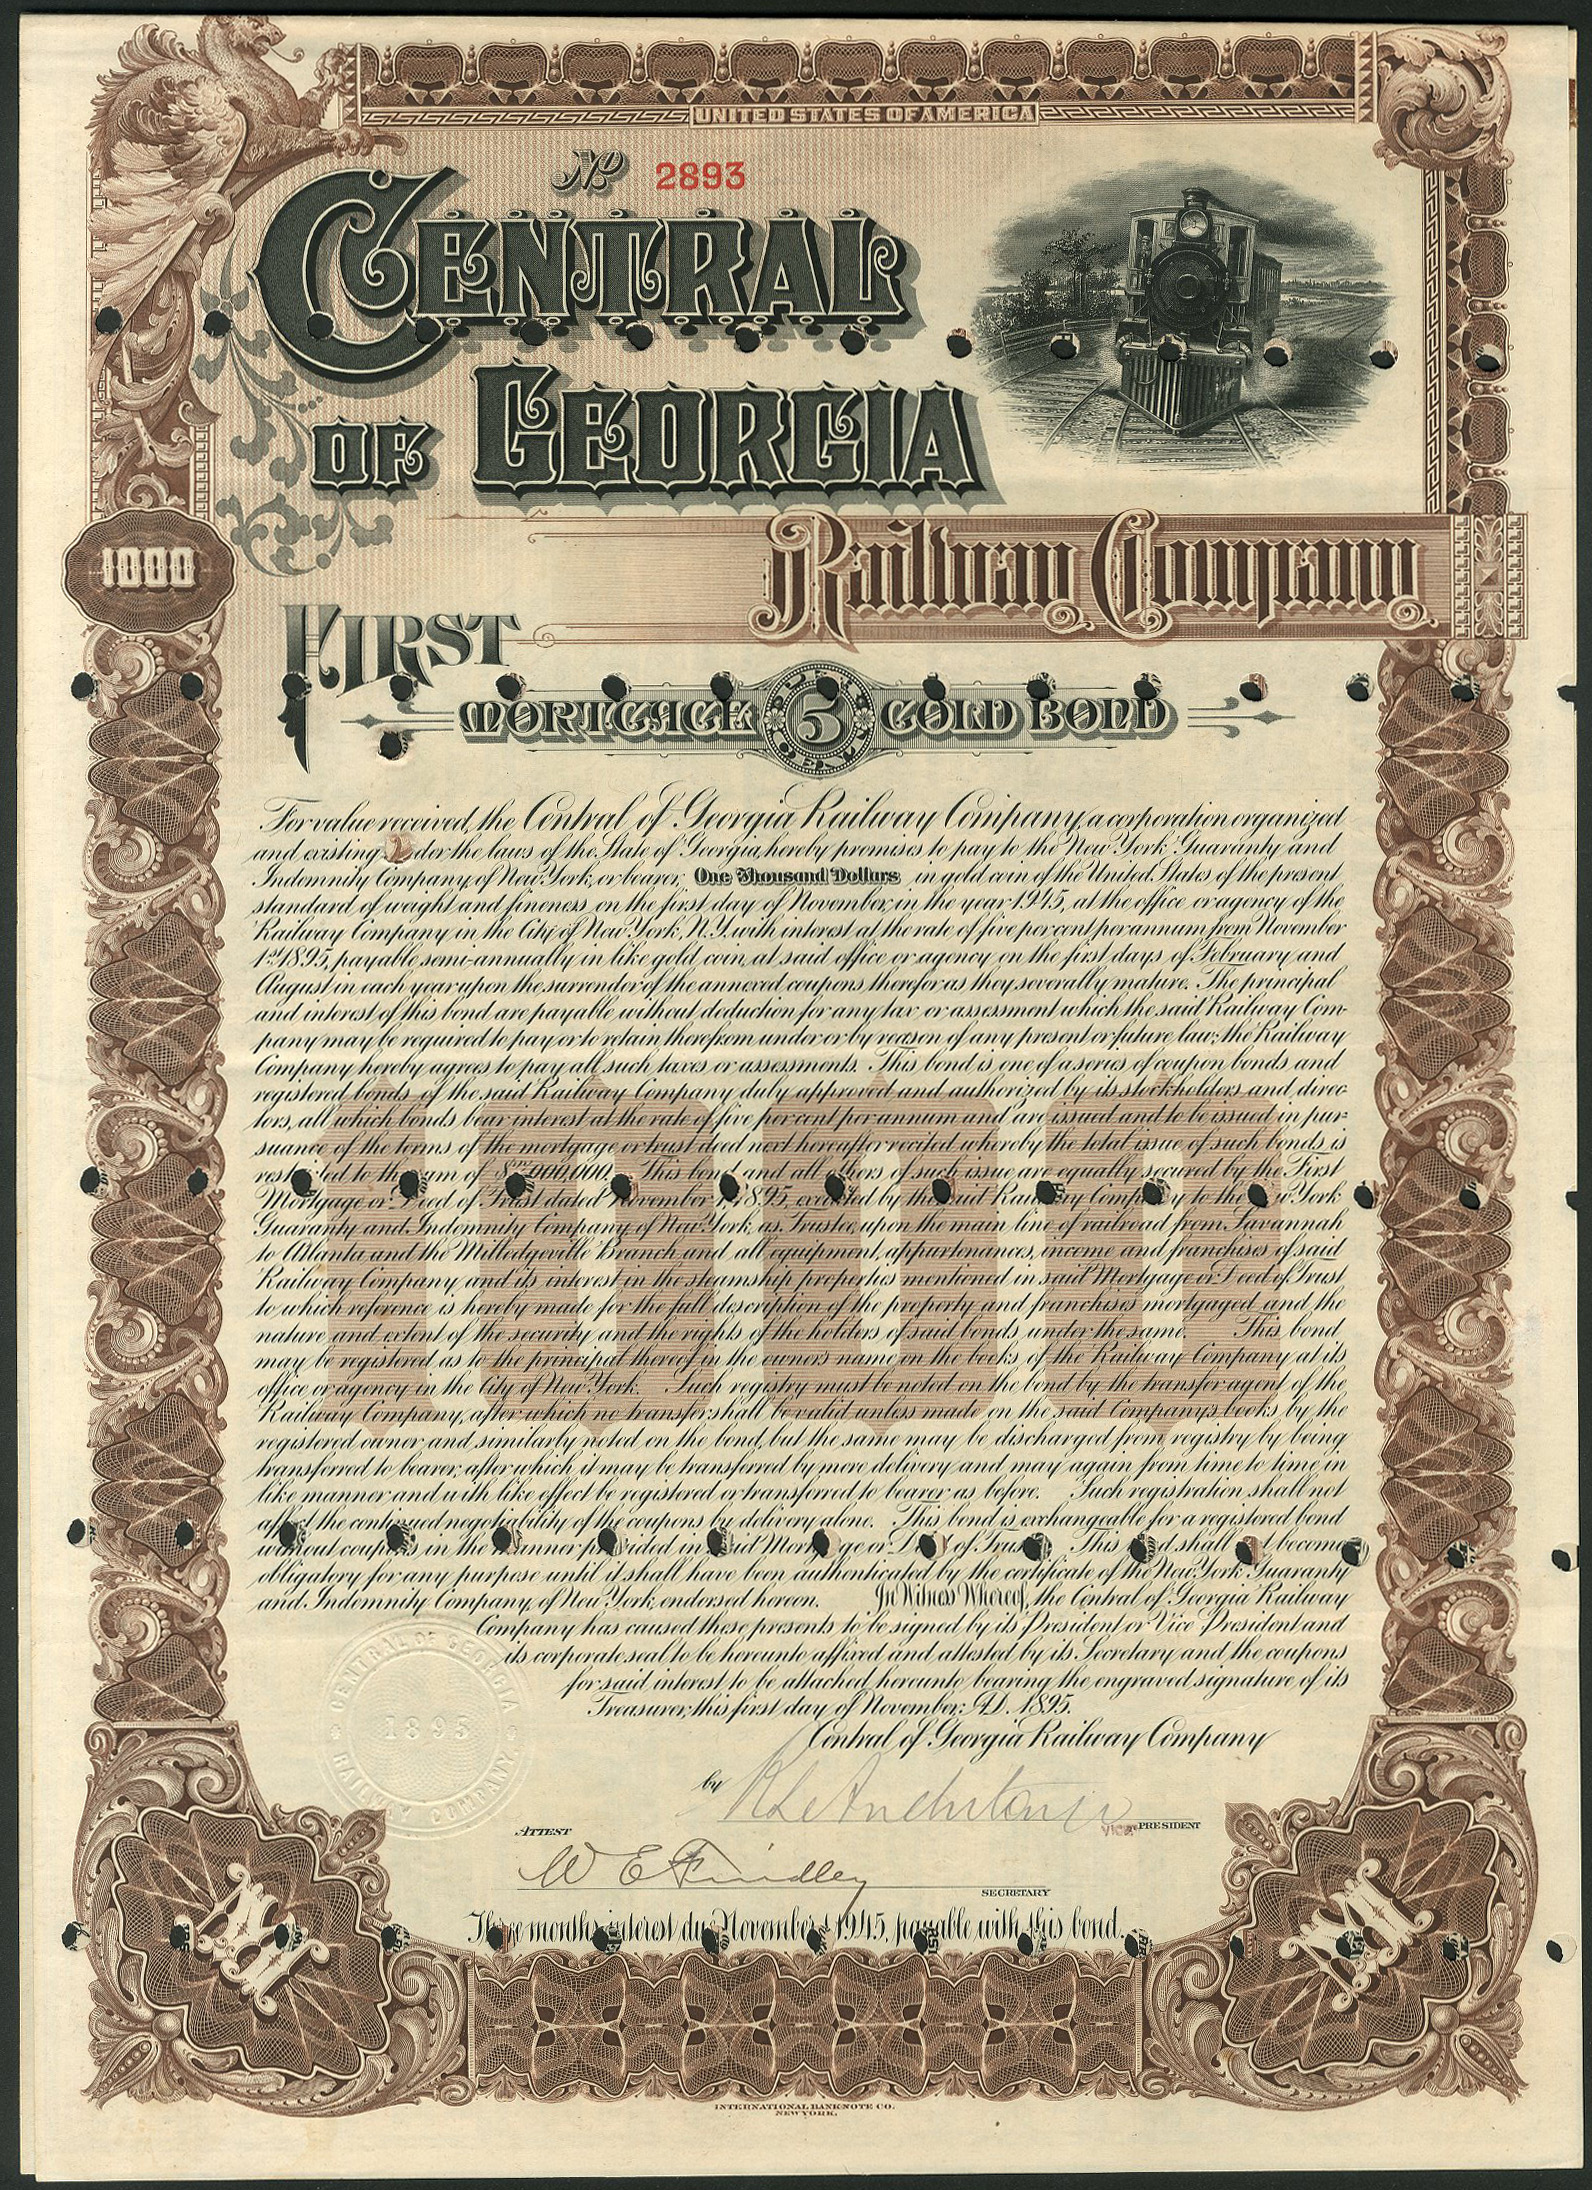 UNITED STATES OF AMERICA
No 2893
CENTRAL
OF GEORGIA
1000
Railway Company
FIRST
MORTGAGE 5 GOLD BOND
For value received, the Central of Georgia Railway Company, a corporation organized
and existing under the laws of the State of Georgia, hereby promises to pay to the New York Guaranty and
Indemnity Company, of New York, or bearer, One Thousand Dollars in gold coin of the United States of the present
standard of weight and fineness on the first day of November, in the year 1945, at the office or agency of the
Railway Company in the City of New York, N.Y. with interest at the rate of five per cent per annum from November
1st 1895, payable semi-annually in like gold coin, at said office or agency on the first days of February and
August in each year upon the surrender of the annexed coupons therefor as they severally mature. The principal
and interest of this bond are payable without deduction for any tax or assessment which the said Railway Com-
pany may be required to pay or to retain therefrom under or by reason of any present or future law; the Railway
Company hereby agrees to pay all such taxes or assessments. This bond is one of a series of coupon bonds and
registered bonds of the said Railway Company duly approved and authorized by its stockholders and direc-
tors, all which bonds bear interest at the rate of five per cent per annum and are issued and to be issued in pur-
suance of the terms of the mortgage or trust deed next hereafter recited whereby the total issue of such bonds is
restricted to the sum of 000,000. This bond and all others of such issue are equally secured by the First
Mortgage or Deed of Trust dated November 1, 1895, executed by the said Railway Company to the New York
Guaranty and Indemnity Company of New York, as Trustee, upon the main line of railroad from Savannah
to Atlanta and the Milledgeville Branch and all equipment, appurtenances, income and franchises of said
Railway Company and its interest in the steamship properties mentioned in said Mortgage or Deed of Trust
to which reference is hereby made for the full description of the property and franchises mortgaged and the
nature and extent of the security and the rights of the holders of said bonds under the same. This bond
may be registered as to the principal thereof in the owners name on the books of the Railway Company at its
office or agency in the City of New York. Such registry must be noted on the bond by the transfer agent of the
Railway Company, after which no transfer shall be valid unless made on the said Company's books by the
registered owner and similarly noted on the bond, but the same may be discharged from registry by being
transferred to bearer, after which it may be transferred by mere delivery and may again from time to time in
like manner and with like effect be registered or transferred to bearer as before. Such registration shall not
affect the continued negotiability of the coupons by delivery alone. This bond is exchangeable for a registered bond
without coupons in the manner provided in said Mortgage or Deed of Trust. This bond shall not become
obligatory for any purpose until it shall have been authenticated by the certificate of the New York Guaranty
and Indemnity Company, of New York, endorsed hereon. In Witness Whereof, the Central of Georgia Railway
Company has caused these presents to be signed by its President or Vice President and
its corporate seal to be hereunto affixed and attested by its Secretary and the coupons
for said interest to be attached hereunto bearing the engraved signature of its
Treasurer, this first day of November, A.D. 1895.
Central of Georgia Railway Company
CENTRAL OF GEORGIA
1895
RAILWAY COMPANY
by
VICE PRESIDENT
ATTEST
W E Findley
SECRETARY
Three months interest due November 1 1945, payable with this bond.
M
M
INTERNATIONAL BANK NOTE CO.
NEW YORK.